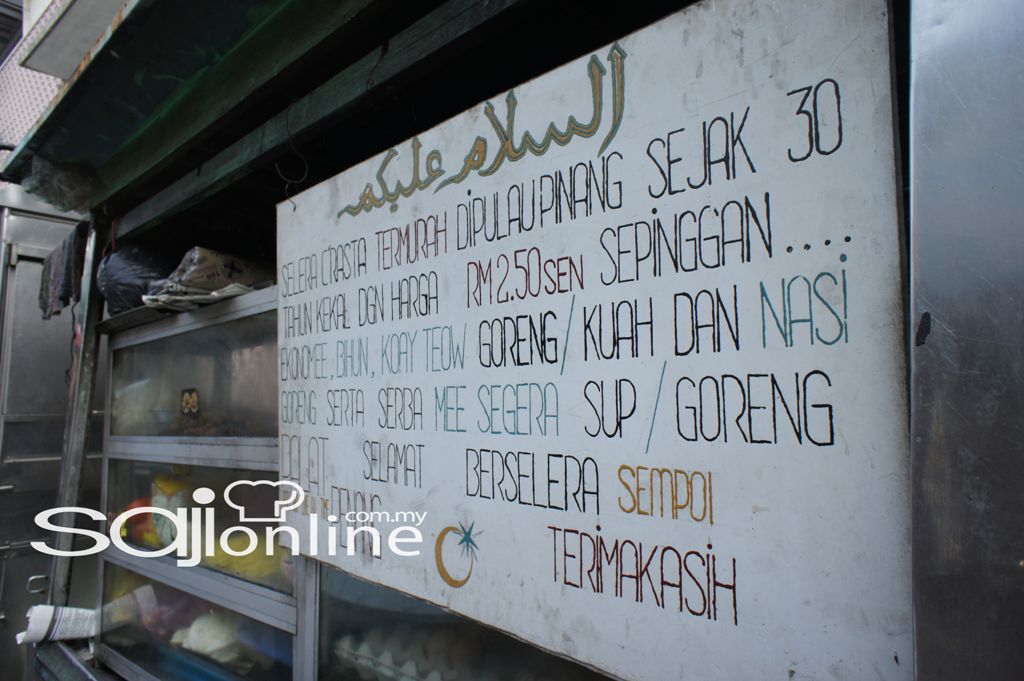 السلام عليكم
SELERA CITARASTA TERMURAH DIPULAU PINANG SEJAK 30
TAHUN KEKAL DGN HARGA RM2.50SEN SEPINGGAN....
EKONOMEE, BIHUN, KOAY TEOW GORENG/KUAH DAN NASI
GORENG SERTA SERBA MEE SEGERA SUP / GORENG
SELAMAT BERSELERA SEMPOI
TERIMAKASIH
sajionline
.com.my